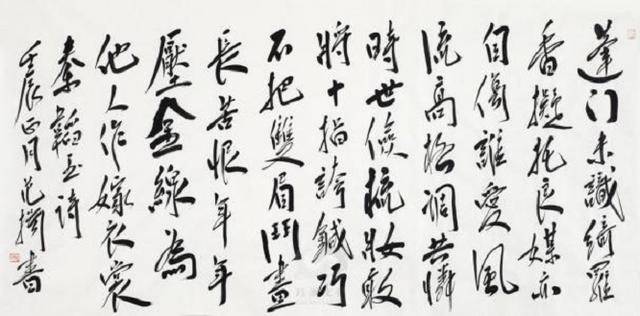 蓬门未識綺羅
香擬托良媒亦
自傷誰愛風
流高格調共憐
時世儉梳妝敢
將十指誇鍼巧
不把雙眉鬥畫
長苦恨年年
壓金線為
他人作嫁衣裳
秦韜玉诗
壬辰正月范書